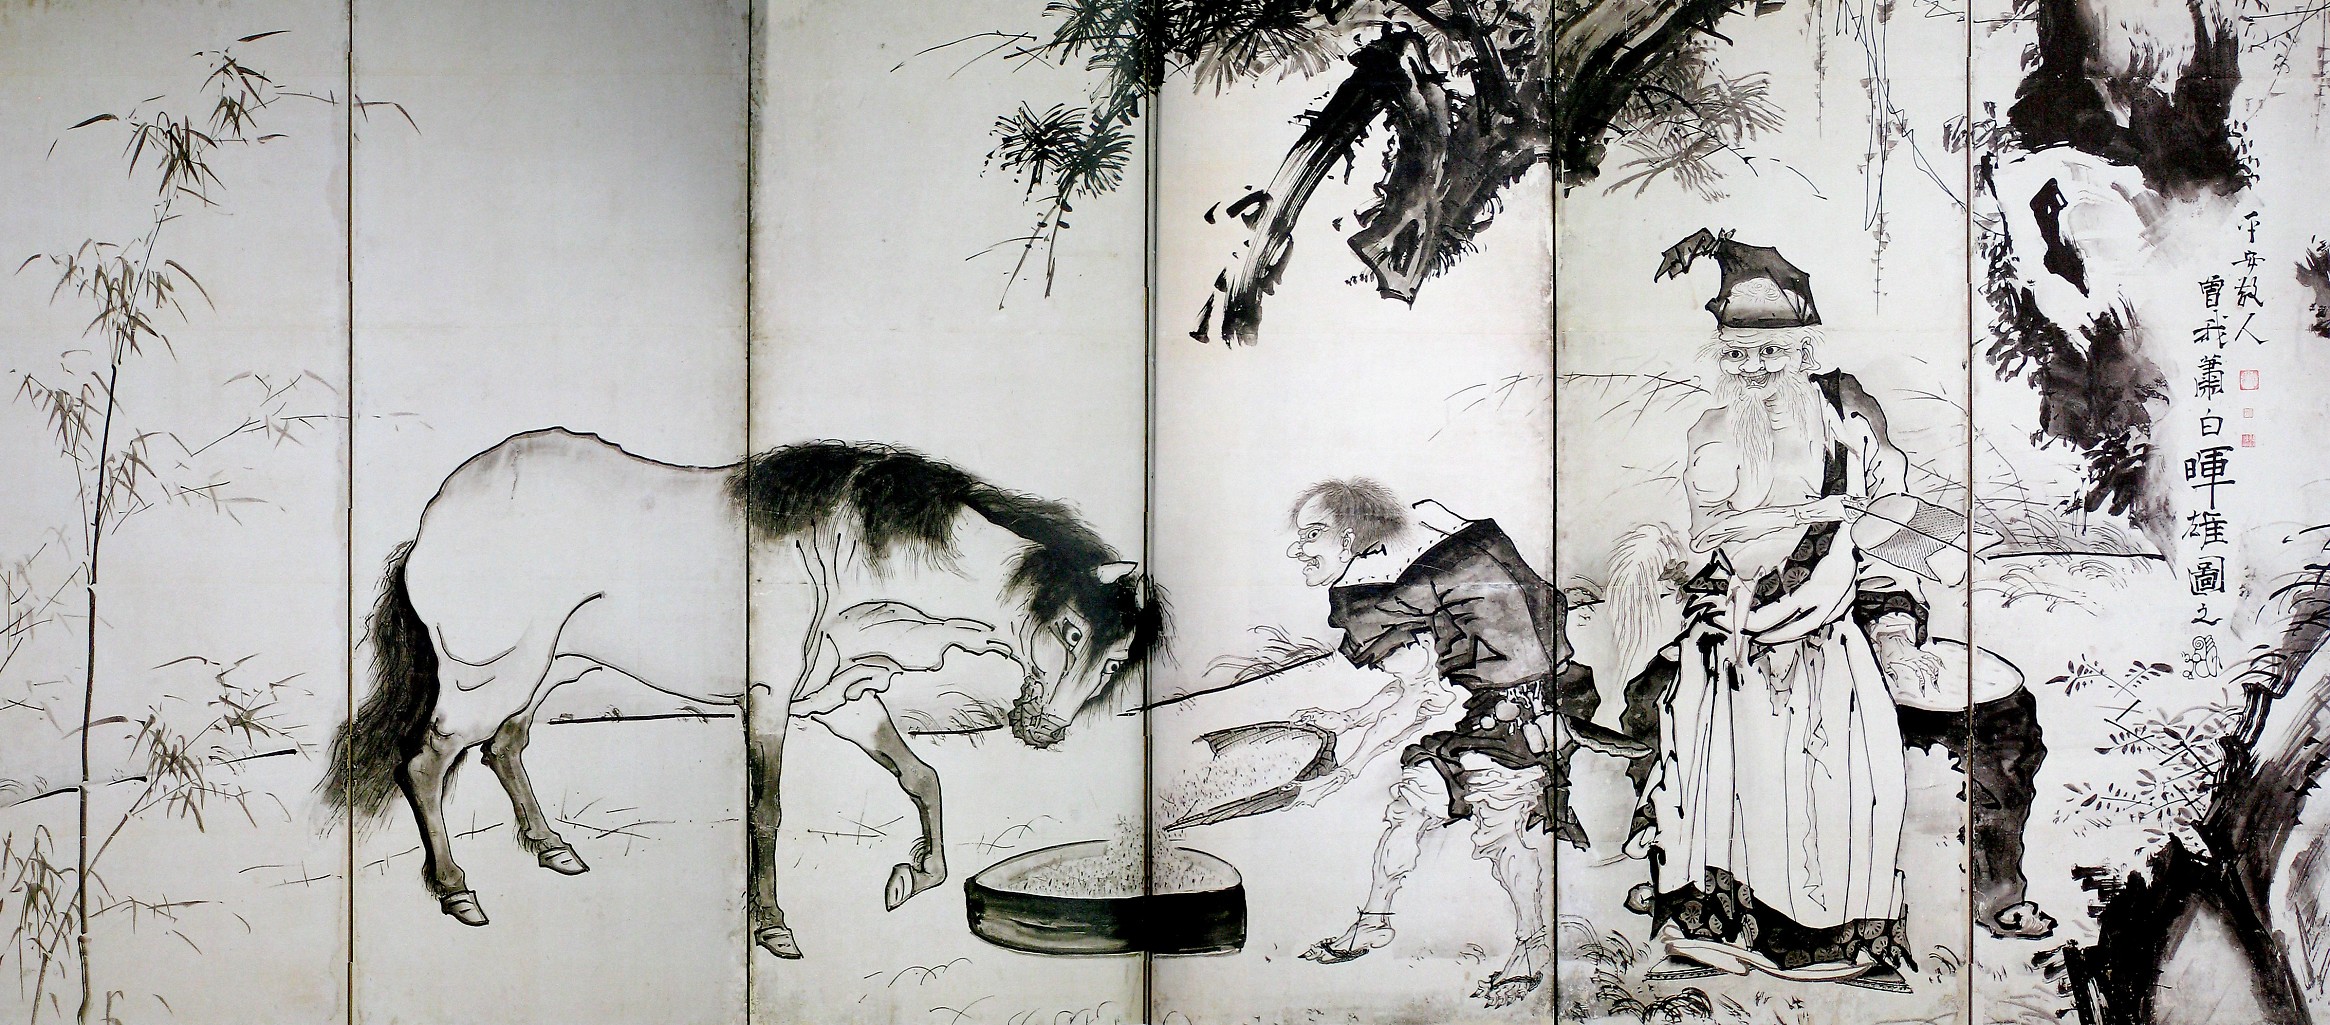 平安散人
曽我蕭白暉雄圖之